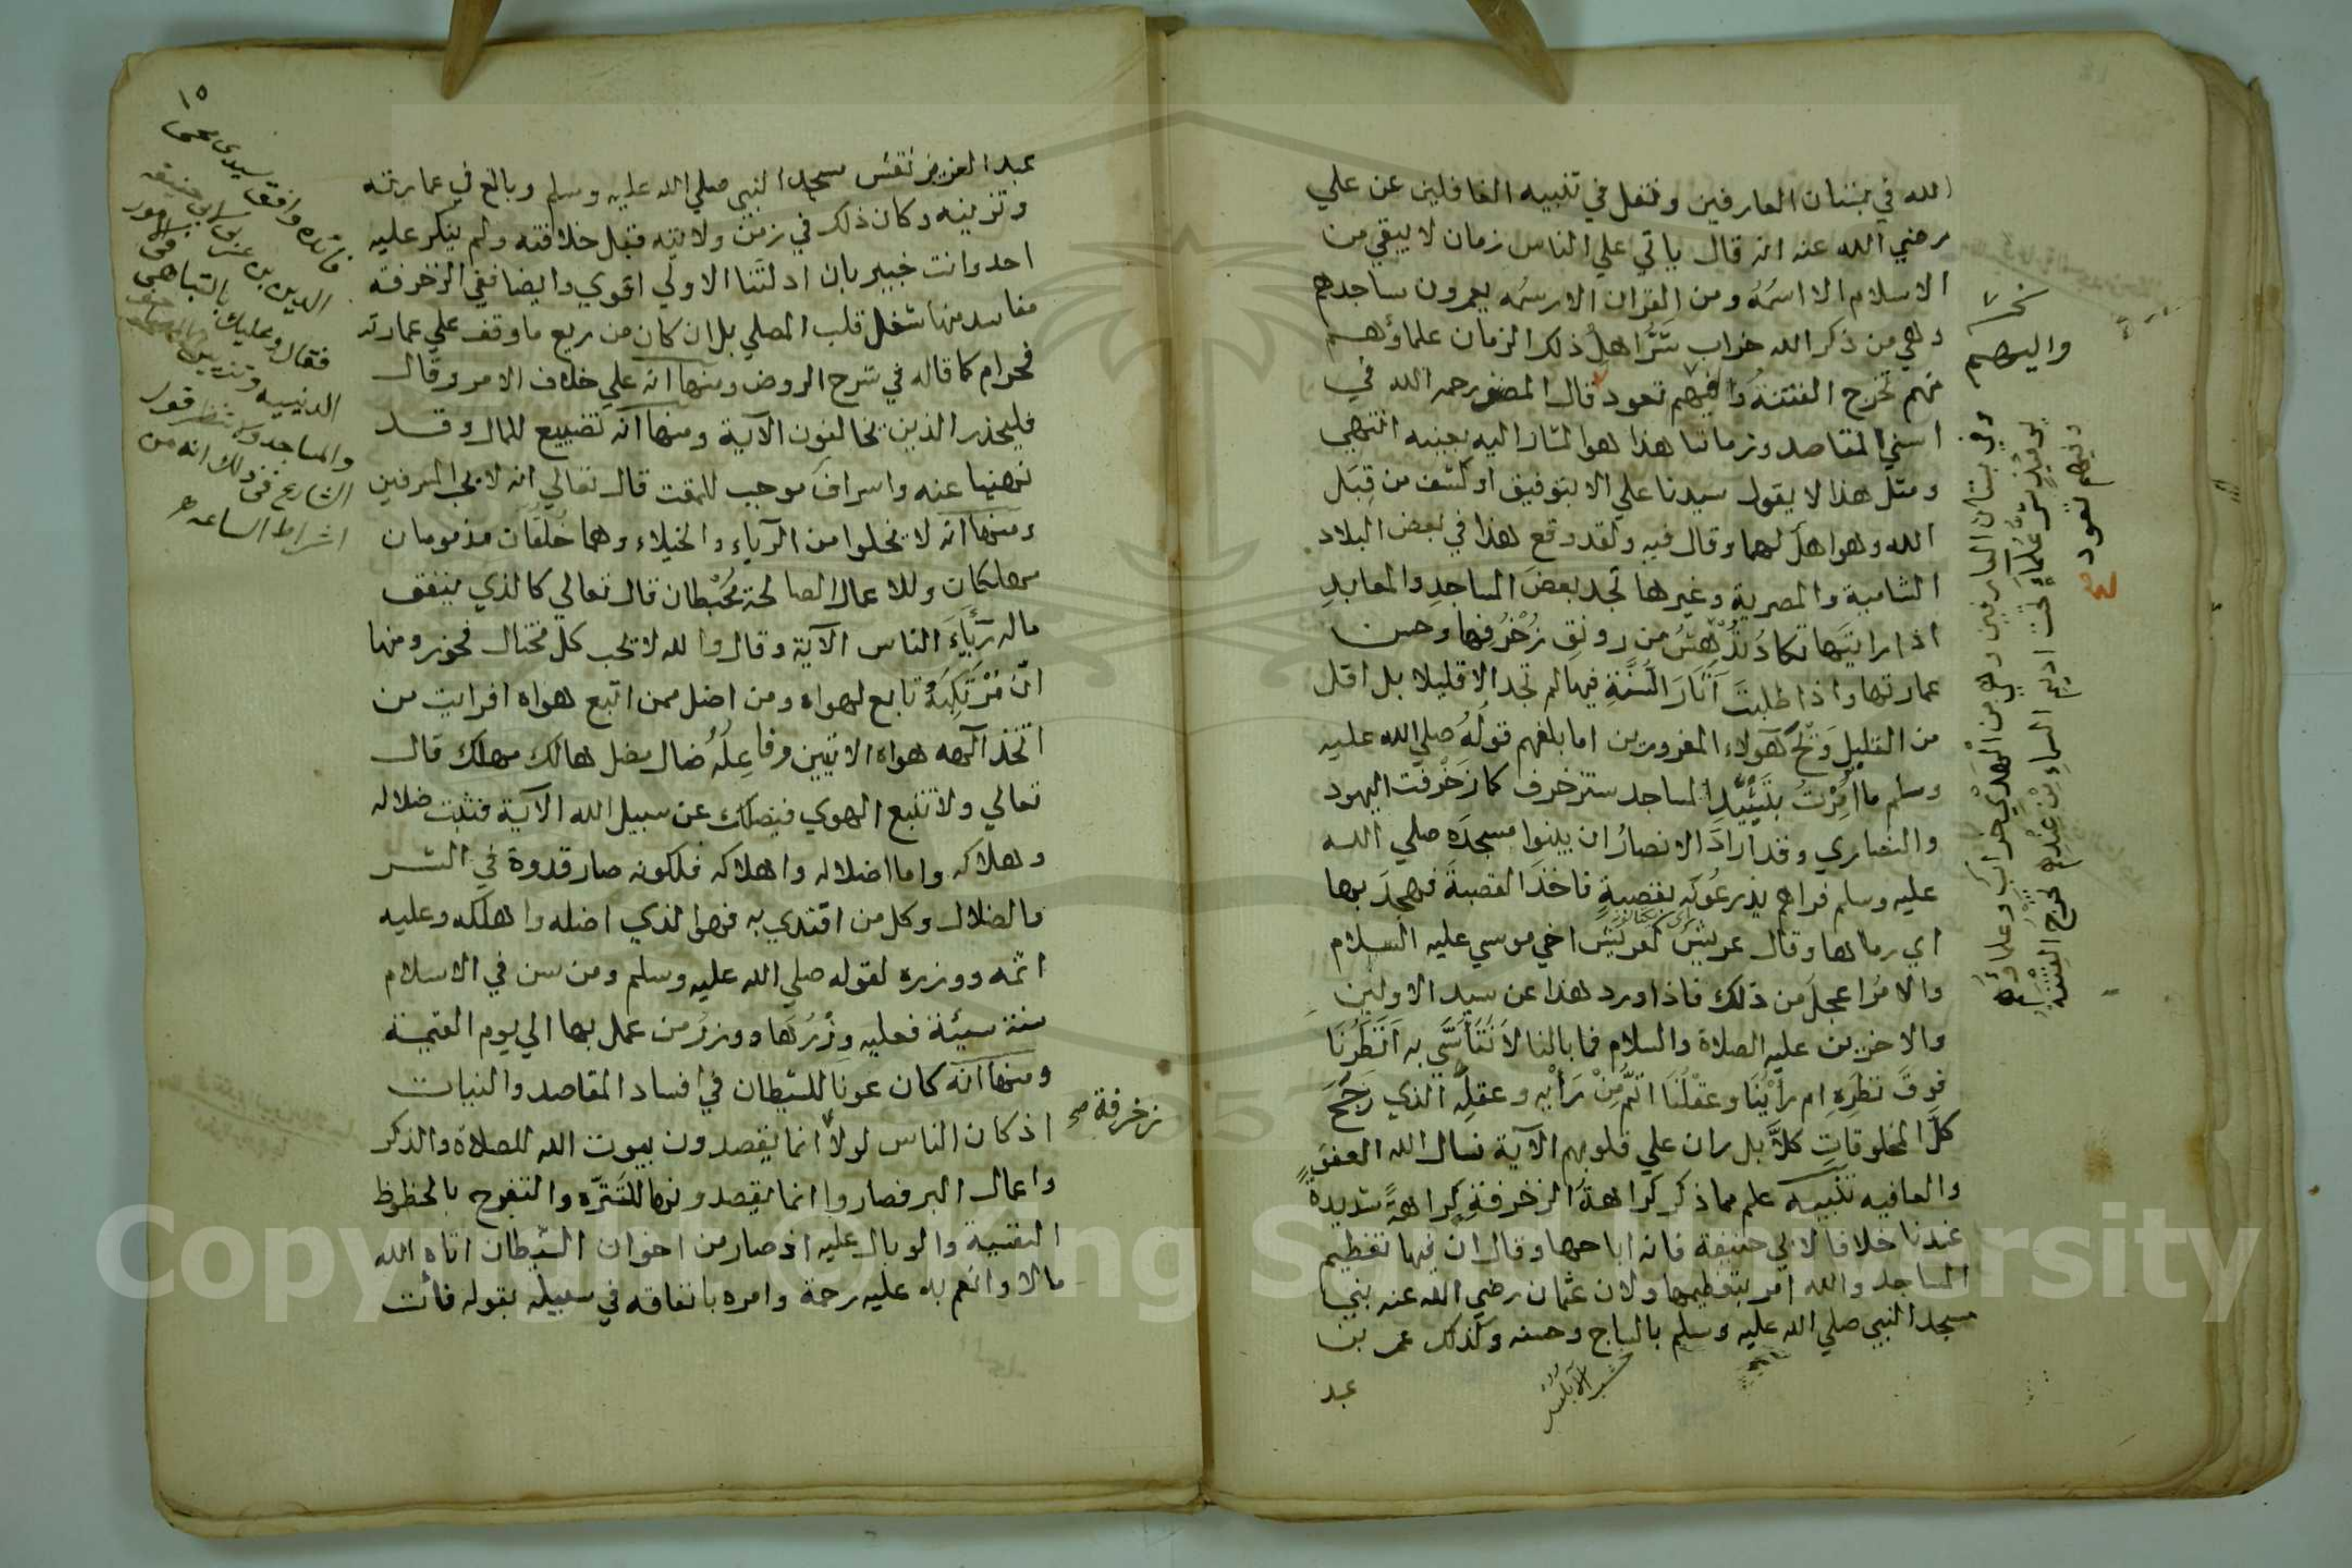 الله في بستان العارفين ونقل في تنبيه الغافلين عن علي
رضي الله عنه انه قال ياتي علي الناس زمان لا يبقي من
الاسلام الا اسمُهُ ومن القران الا رسمُه يعمرون مساجدهم
وهي من ذكر الله خراب شَرُّ اهلِ ذلك الزمان علماؤهم
منهم تخرج الفتنةُ وفيهم تعود قال المصنف رحمه الله في
اسني المقاصد وزماننا هذا هو المشار اليه بعينه انتهي
ومثل هذا لا يقول سيدنا علي الا بتوقيف او كشف من قِبَل
الله وهو اهل لهما وقال فيه ولقد وقع هذا في بعض البلاد
الشامية والمصرية وغيرها تجد بعضَ المساجدِ والمعابدِ
اذا رايتَها تكادُ تُدْهِشُ من رونقِ زُخْرُفِها وحسن
عمارتها واذا طلبتَ آثارَ السُّنَّةِ فيها لم تجد الا قليلا بل اقل
من القليلِ وَيْحَ هَولاء المغرورين اما بلغهم قولُهُ صلي الله عليه
وسلم ما اُمِرْتُ بتَشْيِيدِ المساجد ستزخرف كما زَخْرَفت اليهود
والنصاري وقد ارادَ الانصارُ ان يبنوا مسجدَه صلي الله
عليه وسلم فراهم يذرعُونَه بقصبةٍ فاخذَ القصبةَ فهجدَ بها
اي رما بها وقال عريش كعريش اخي موسي عليه السلام
والامرُ اعجلُ من ذلك فاذا ورد هذا عن سيد الاولين
والاخرين عليه الصلاة والسلام فما بالنا لا نَتَأسَّي به اَنَظَرُنَا
فوقَ نظَرِهِ ام رأيُنَا وعقلُنَا اتمُّ مِنْ رَأيِه وعقلِهِ الذي رَجَحَ
كلَّ المخلوقاتِ كلَّا بل ران علي قلوبهم الآية نسال الله العفو
والعافيه تنبيه علم مما ذكر كراهةُ الزخرفةِ كراهةً شديدةً
عندنا خلافا لابي حنيفة فانه اباحها وقال ان فيها تعظيم
المساجد والله امر بتعظيمها ولان عثمان رضي الله عنه بني
مسجد النبي صلي الله عليه وسلم بالساج وحسنه وكذلك عمر بن
عبد
واليهم
وفيهم تعود
١٥
عبد العزيز نقش مسجد النبي صلي الله عليه وسلم وبالغ في عمارته
وتزيينه وكان ذلك في زمن ولايته قبل خلافته ولم ينكر عليه
احد وانت خبير بان ادلتنا الاولي اقوي وايضا ففي الزخرفة
مفاسد منها شغل قلب المصلي بل ان كان من ريع ما وقف علي عمارته
فحرام كما قاله في شرح الروض ومنها انه علي خلاف الامر وقال
فليحذر الذين يخالفون الآية ومنها انه تضييع للمال وقد
نهينا عنه واسراف موجب للمقت قال تعالي انه لا يحب المسرفين
ومنها انه لا يخلوا من الرياء والخيلاء وهما خُلُقَان مذمومان
مهلكان وللاعمال الصالحة مُحْبِطان قال تعالي كالذي ينفق
ماله رِئَاءَ الناس الآية وقال والله لا يحب كل مختال فخور ومنها
انّ مُرْتَكِبَهُ تابع لهواه ومن اضل ممن اتبع هواه افرايت من
اتخذ الهه هواه الايتين وفاعِلُهُ ضال مضل هالك مهلك قال
تعالي ولا تتبع الهوي فيضلك عن سبيل الله الآية فثبت ضلاله
وهلاكه واما اضلاله واهلاكه فلكونه صار قدوة في الشر
والضلال وكل من اقتدي به فهو الذي اضله واهلكه وعليه
اثمه ووزره لقوله صلي الله عليه وسلم ومن سن في الاسلام
سنة سيئة فعليه وِزْرُهَا ووزرُ من عمل بها الي يوم القيمة
ومنها انه كان عونا للشيطان في افساد المقاصد والنيات
اذ كان الناس لولا انما يقصدون بيوت الله للصلاة والذكر
واعمال البر فصاروا انما يقصدونها للتَنَزُّه والتفرج بالحظوظ
النفسية والوبال عليه اذ صار من اخوان الشيطان اتاه الله
مالا وانعم به عليه رحمة وامره بانفاقه في سبيله بقوله فأنت
زخرفة صح
فائده وافق سيدي
الدين بن عربي ابي حنيفه
فقال وعليك بالتباهي في الامور
الدينيه وتزيين المصاحف
والمساجد ولا تنظر قول
الشارع في ذلك انه من
اشراط الساعه
Copyright © King Saud University